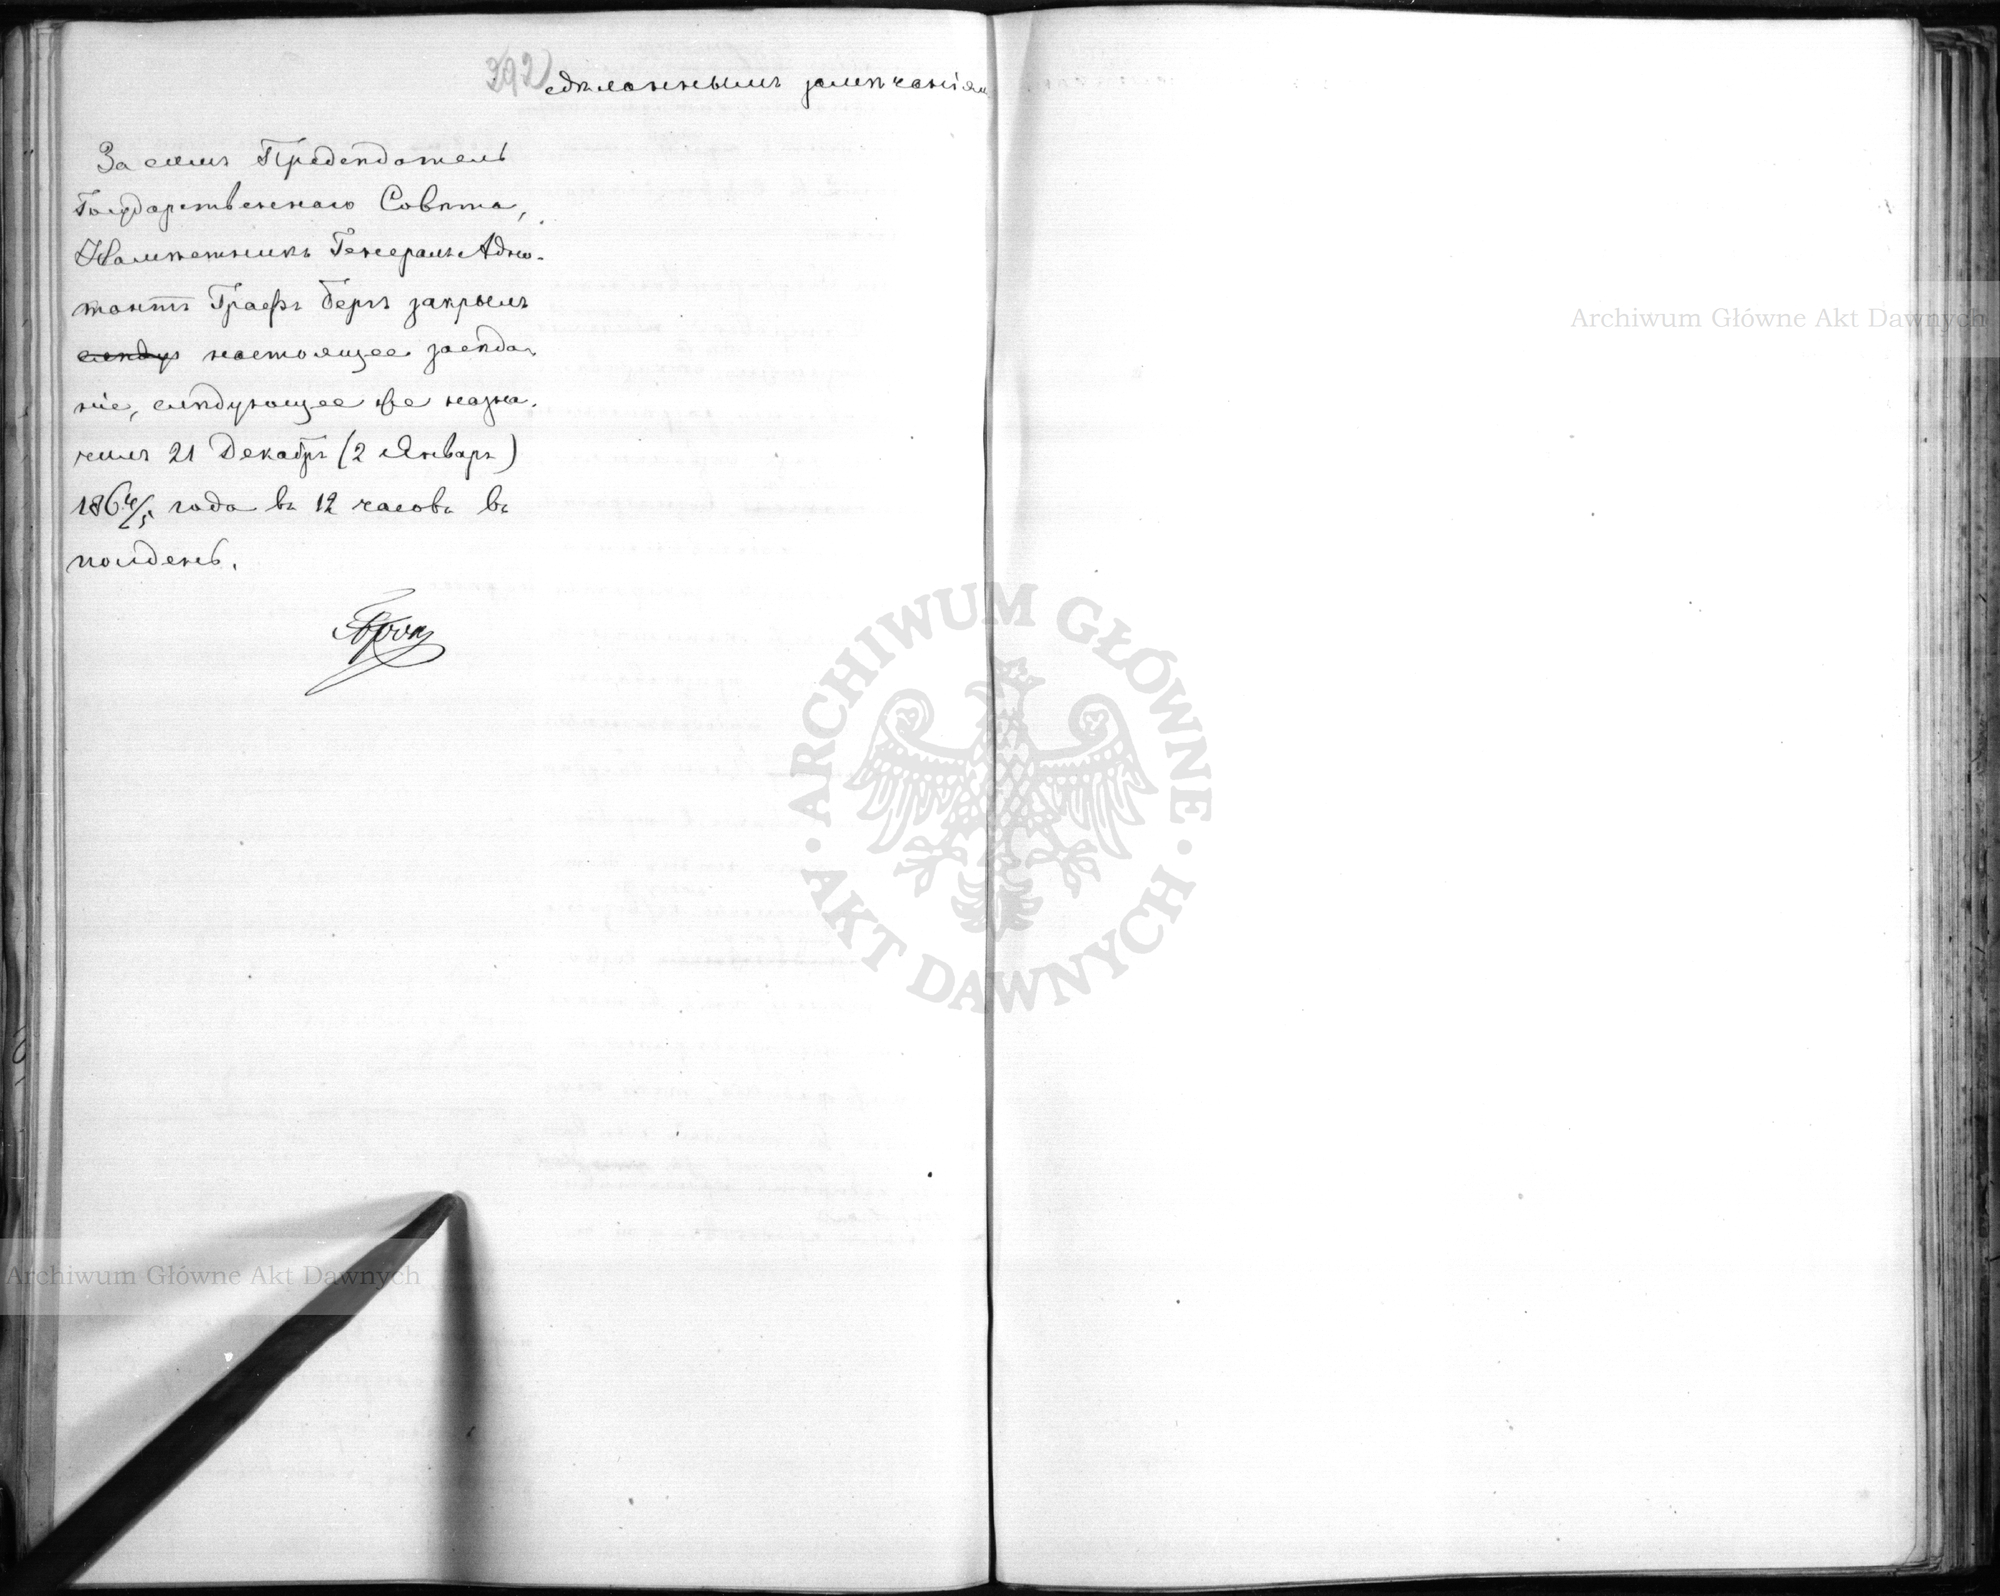 392)
сдѣланнымъ замѣчаніямъ
За симъ Предсѣдатель
Государственнаго Совѣта,
Намѣстникъ Генералъ Адъю-
тантъ Графъ Бергъ закрылъ
слѣдую настоящее засѣда-
ніе, слѣдующее же назна-
чилъ 21 Декабрѣ (2 Январѣ)
1864/5 года въ 12 часовъ въ
полдень.
Archiwum Główne Akt Dawnych
ARCHIWUM GŁÓWNE · AKT DAWNYCH ·
Archiwum Główne Akt Dawnych